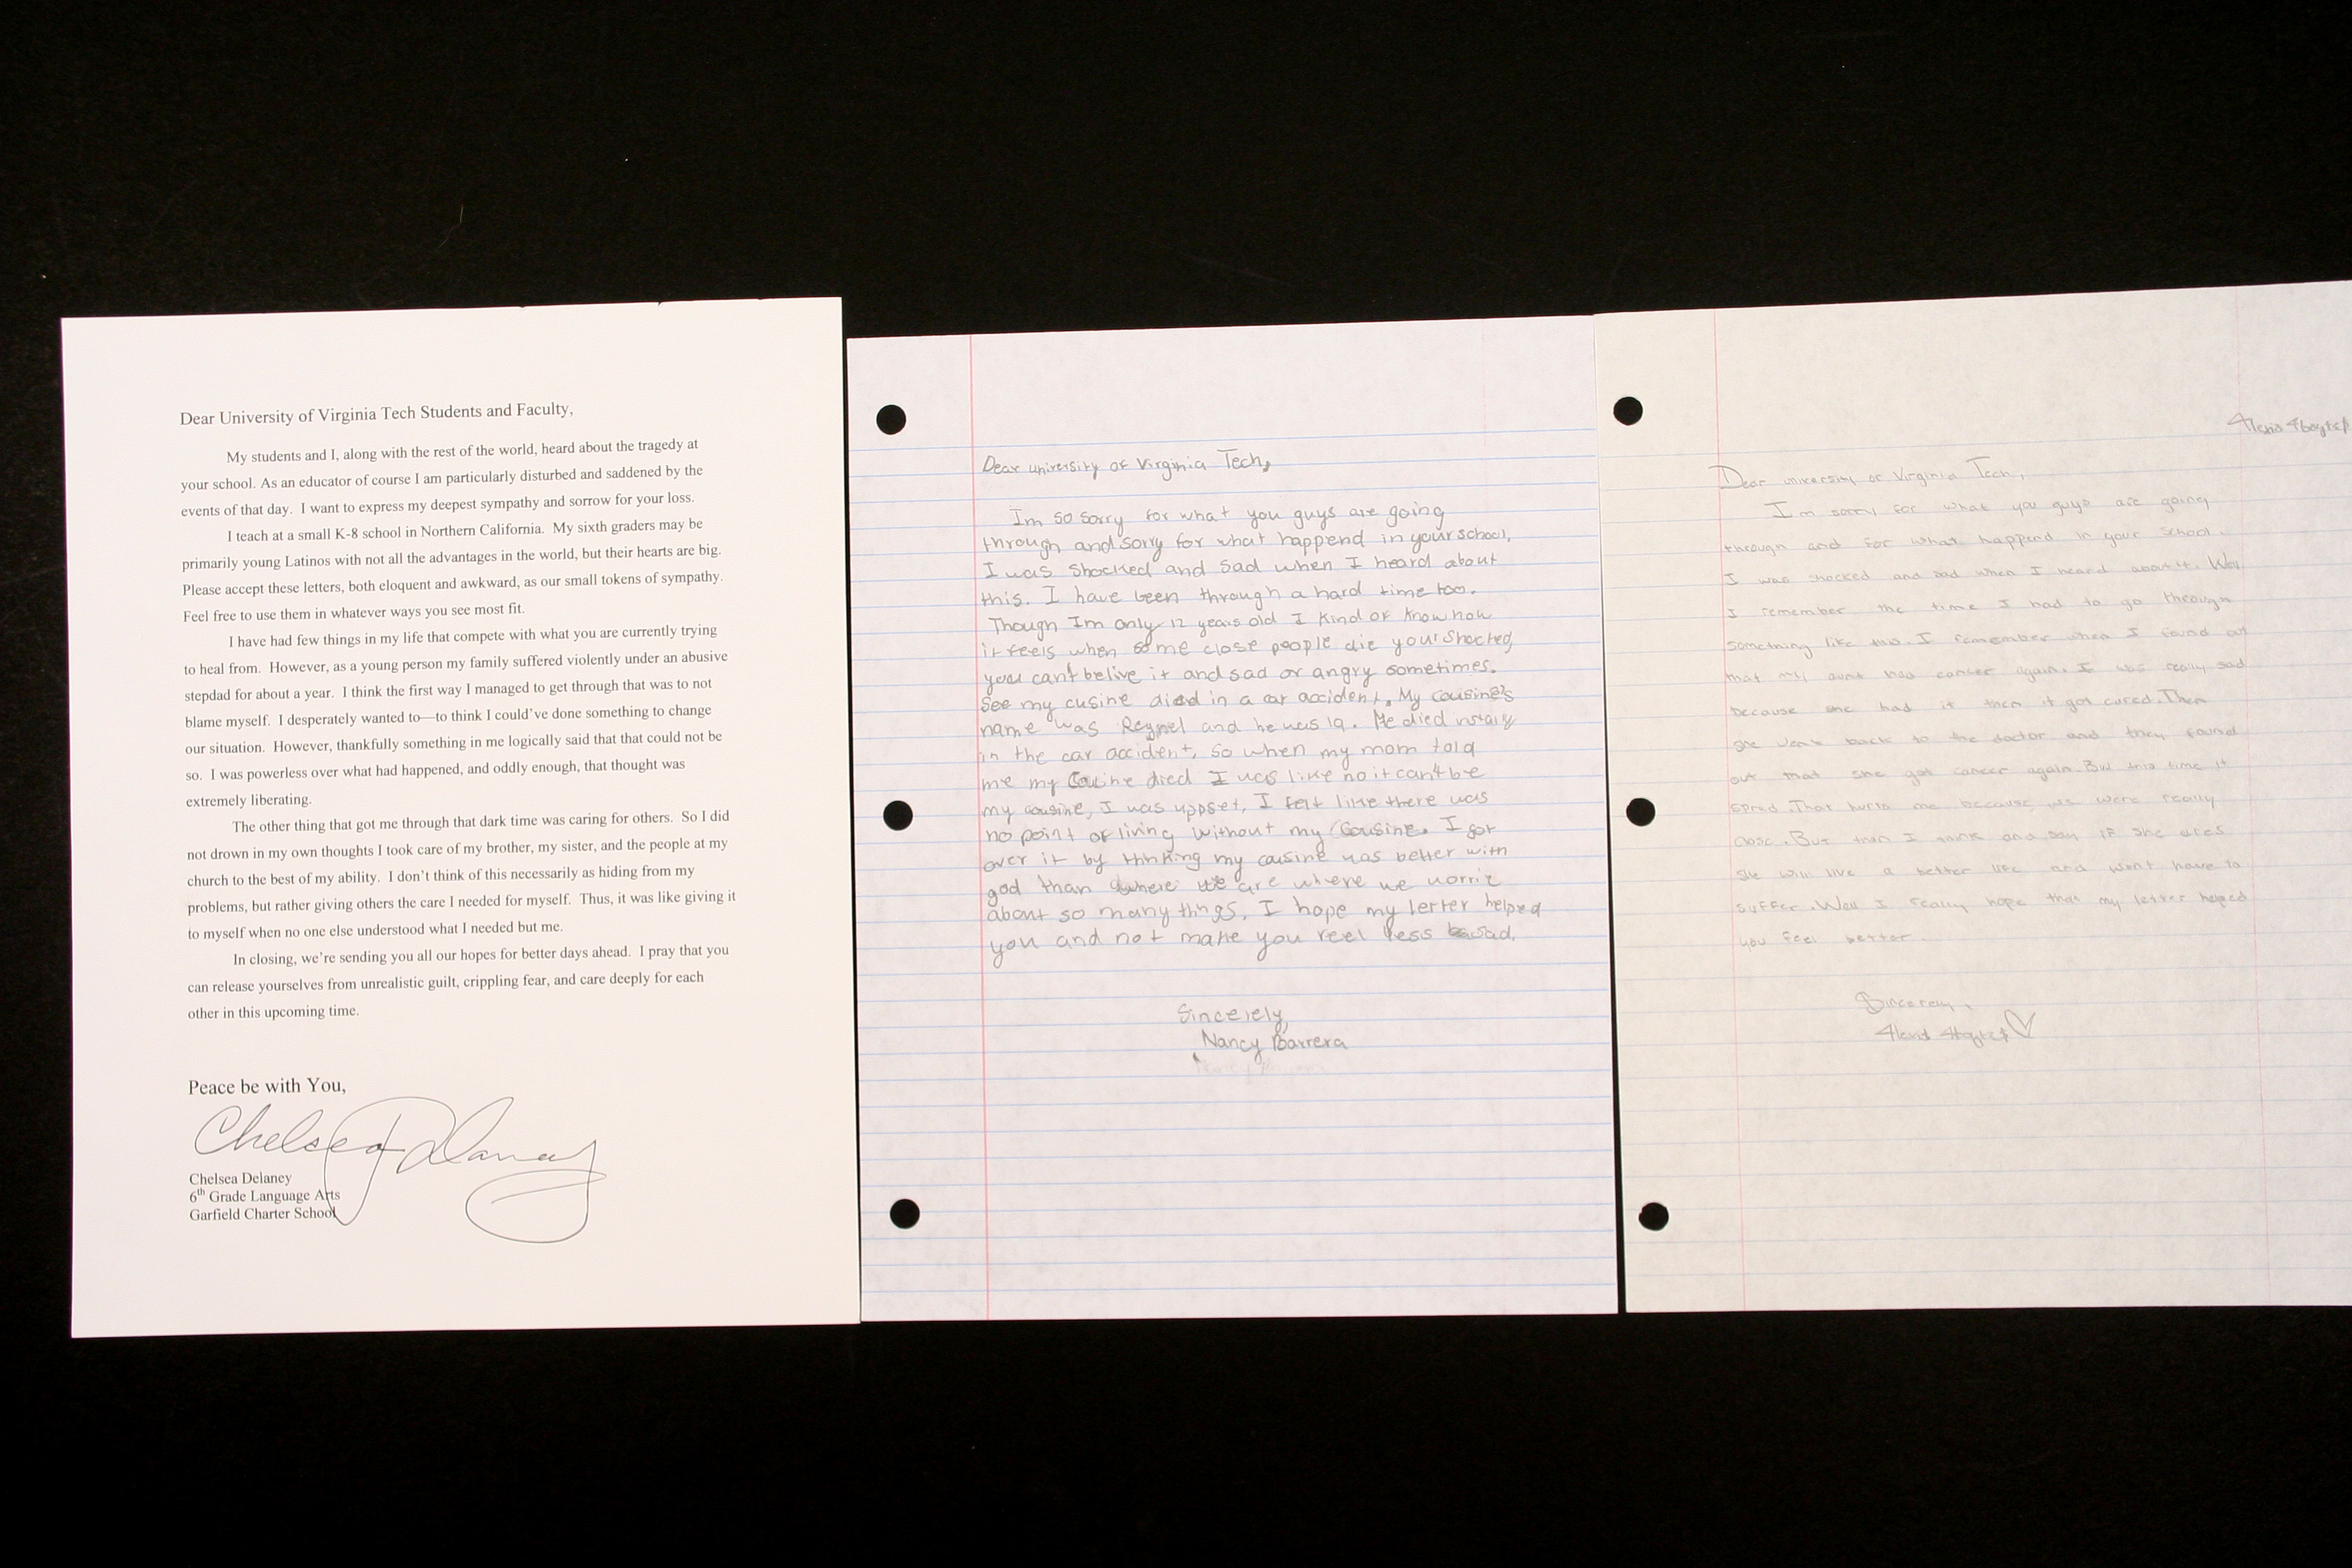 Dear University of Virginia Tech Students and Faculty,
My students and I, along with the rest of the world, heard about the tragedy at
your school. As an educator of course I am particularly disturbed and saddened by the
events of that day. I want to express my deepest sympathy and sorrow for your loss.
I teach at a small K-8 school in Northern California. My sixth graders may be
primarily young Latinos with not all the advantages in the world, but their hearts are big.
Please accept these letters, both eloquent and awkward, as our small tokens of sympathy.
Feel free to use them in whatever ways you see most fit.
I have had few things in my life that compete with what you are currently trying
to heal from. However, as a young person my family suffered violently under an abusive
stepdad for about a year. I think the first way I managed to get through that was to not
blame myself. I desperately wanted to—to think I could've done something to change
our situation. However, thankfully something in me logically said that that could not be
so. I was powerless over what had happened, and oddly enough, that thought was
extremely liberating.
The other thing that got me through that dark time was caring for others. So I did
not drown in my own thoughts I took care of my brother, my sister, and the people at my
church to the best of my ability. I don't think of this necessarily as hiding from my
problems, but rather giving others the care I needed for myself. Thus, it was like giving it
to myself when no one else understood what I needed but me.
In closing, we're sending you all our hopes for better days ahead. I pray that you
can release yourselves from unrealistic guilt, crippling fear, and care deeply for each
other in this upcoming time.
Peace be with You,
Chelsea Delaney
Chelsea Delaney
6th Grade Language Arts
Garfield Charter School
Dear university of Virginia Tech,
Im so sorry for what you guys are going
through and sorry for what happend in your school,
I was shocked and sad when I heard about
this. I have been through a hard time too.
Though Im only 12 years old I kind of know how
it feels when some close people die your shocked,
you can't belive it and sad or angry sometimes.
See my cusine died in a car accident. My cousine's
name was Reynel and he was 19. He died
in the car accident, so when my mom told
me my cousine died I was like no it can't be
my cousine, I was uppset, I felt like there was
no point of living without my cousine. I got
over it by thinking my cousine was better with
god than where we are where we worrie
about so many things, I hope my letter helped
you and not make you feel less sad.
Sincerely,
Nancy Barrera
Alexis
Dear university of Virginia Tech,
I'm sorry for what you guys are going
through and for what happend in your school.
I was shocked and sad when I heard about it. Well
I remember the time I had to go through
something like this. I remember when I found out
that my aunt had cancer again. I was really sad
because she had it then it got cured. Then
she went back to the doctor and they found
out that she got cancer again. But this time it
spred. That hurts me because we were really
close. But then I think and say if she dies
she will live a better life and wont have to
suffer. Well I really hope that my letter helped
you feel better.
Sincerely,
Alexis